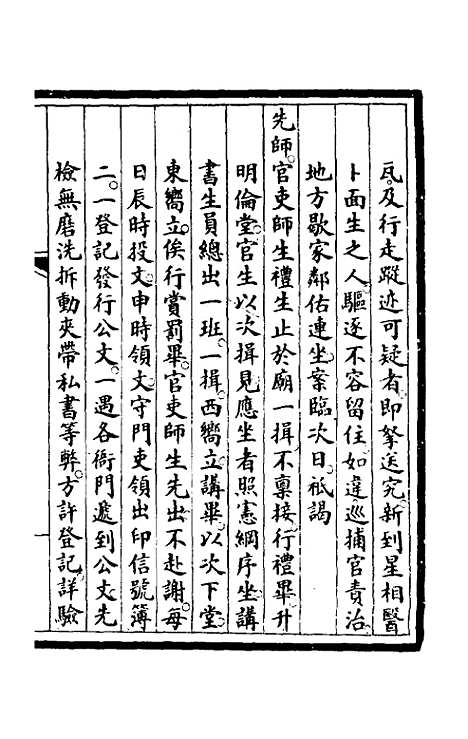 瓦。及行走蹤迹可疑者。即拏送究。新到星相醫
卜面生之人。驅逐不容留住。如違。巡捕官責治
地方歇家鄰佑連坐。案臨次日。祗謁
先師。官吏師生禮生止於廟一揖。不稟接。行禮畢。升
明倫堂。官生以次揖見。應坐者照憲綱序坐。講
書生員總出一班。一揖。西嚮立。講畢。以次下堂。
東嚮立。俟行賞罰畢。官吏師生先出。不赴謝。每
日辰時投文。申時領文。守門吏領出印信號簿
二。一登記發行公文。一遇各衙門遞到公文。先
檢無磨洗拆動夾帶私書等弊。方許登記。詳驗